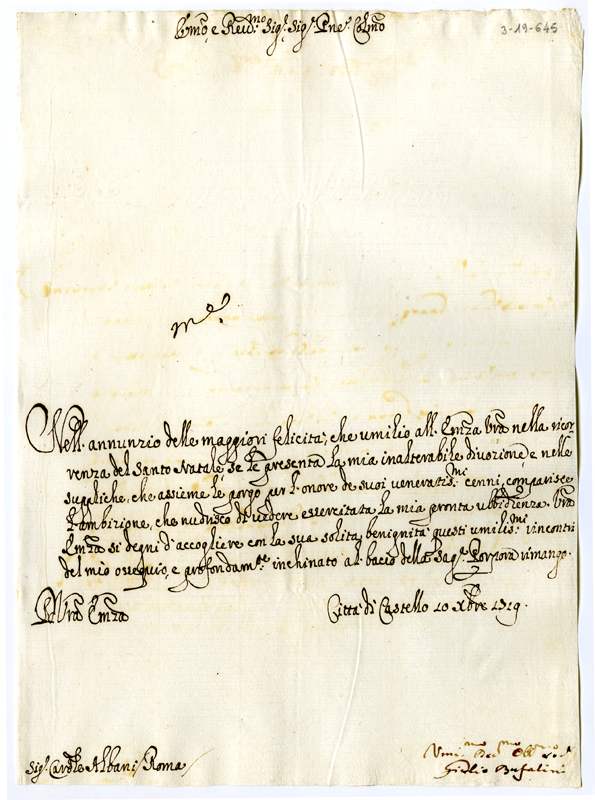 Emo, e Reud.mo Sig.r Sig.r Pne. Colmo
3-19-645
Nell'annunzio delle maggiori felicità, che umilio all'Emza Vra nella ricor-
renza del Santo Natale se le presenta la mia inalterabile divozione, e nelle
suppliche, che assieme le porgo per l'onore de suoi veneratis.mi cenni, comparisce
l'ambizione, che nudrisco di vedere essercitata la mia pronta ubbidienza. Vra
Emza si degni d'accogliere con la sua solita benignità questi umilis.mi rincontri
del mio ossequio, e profondam.te inchinato al bacio della Sag.a Porpora rimango.
Di Vra Emza
Città di Castello 10 Xbre 1719.
Sig.r Card.le Albani / Roma /
Giulio Bufalini